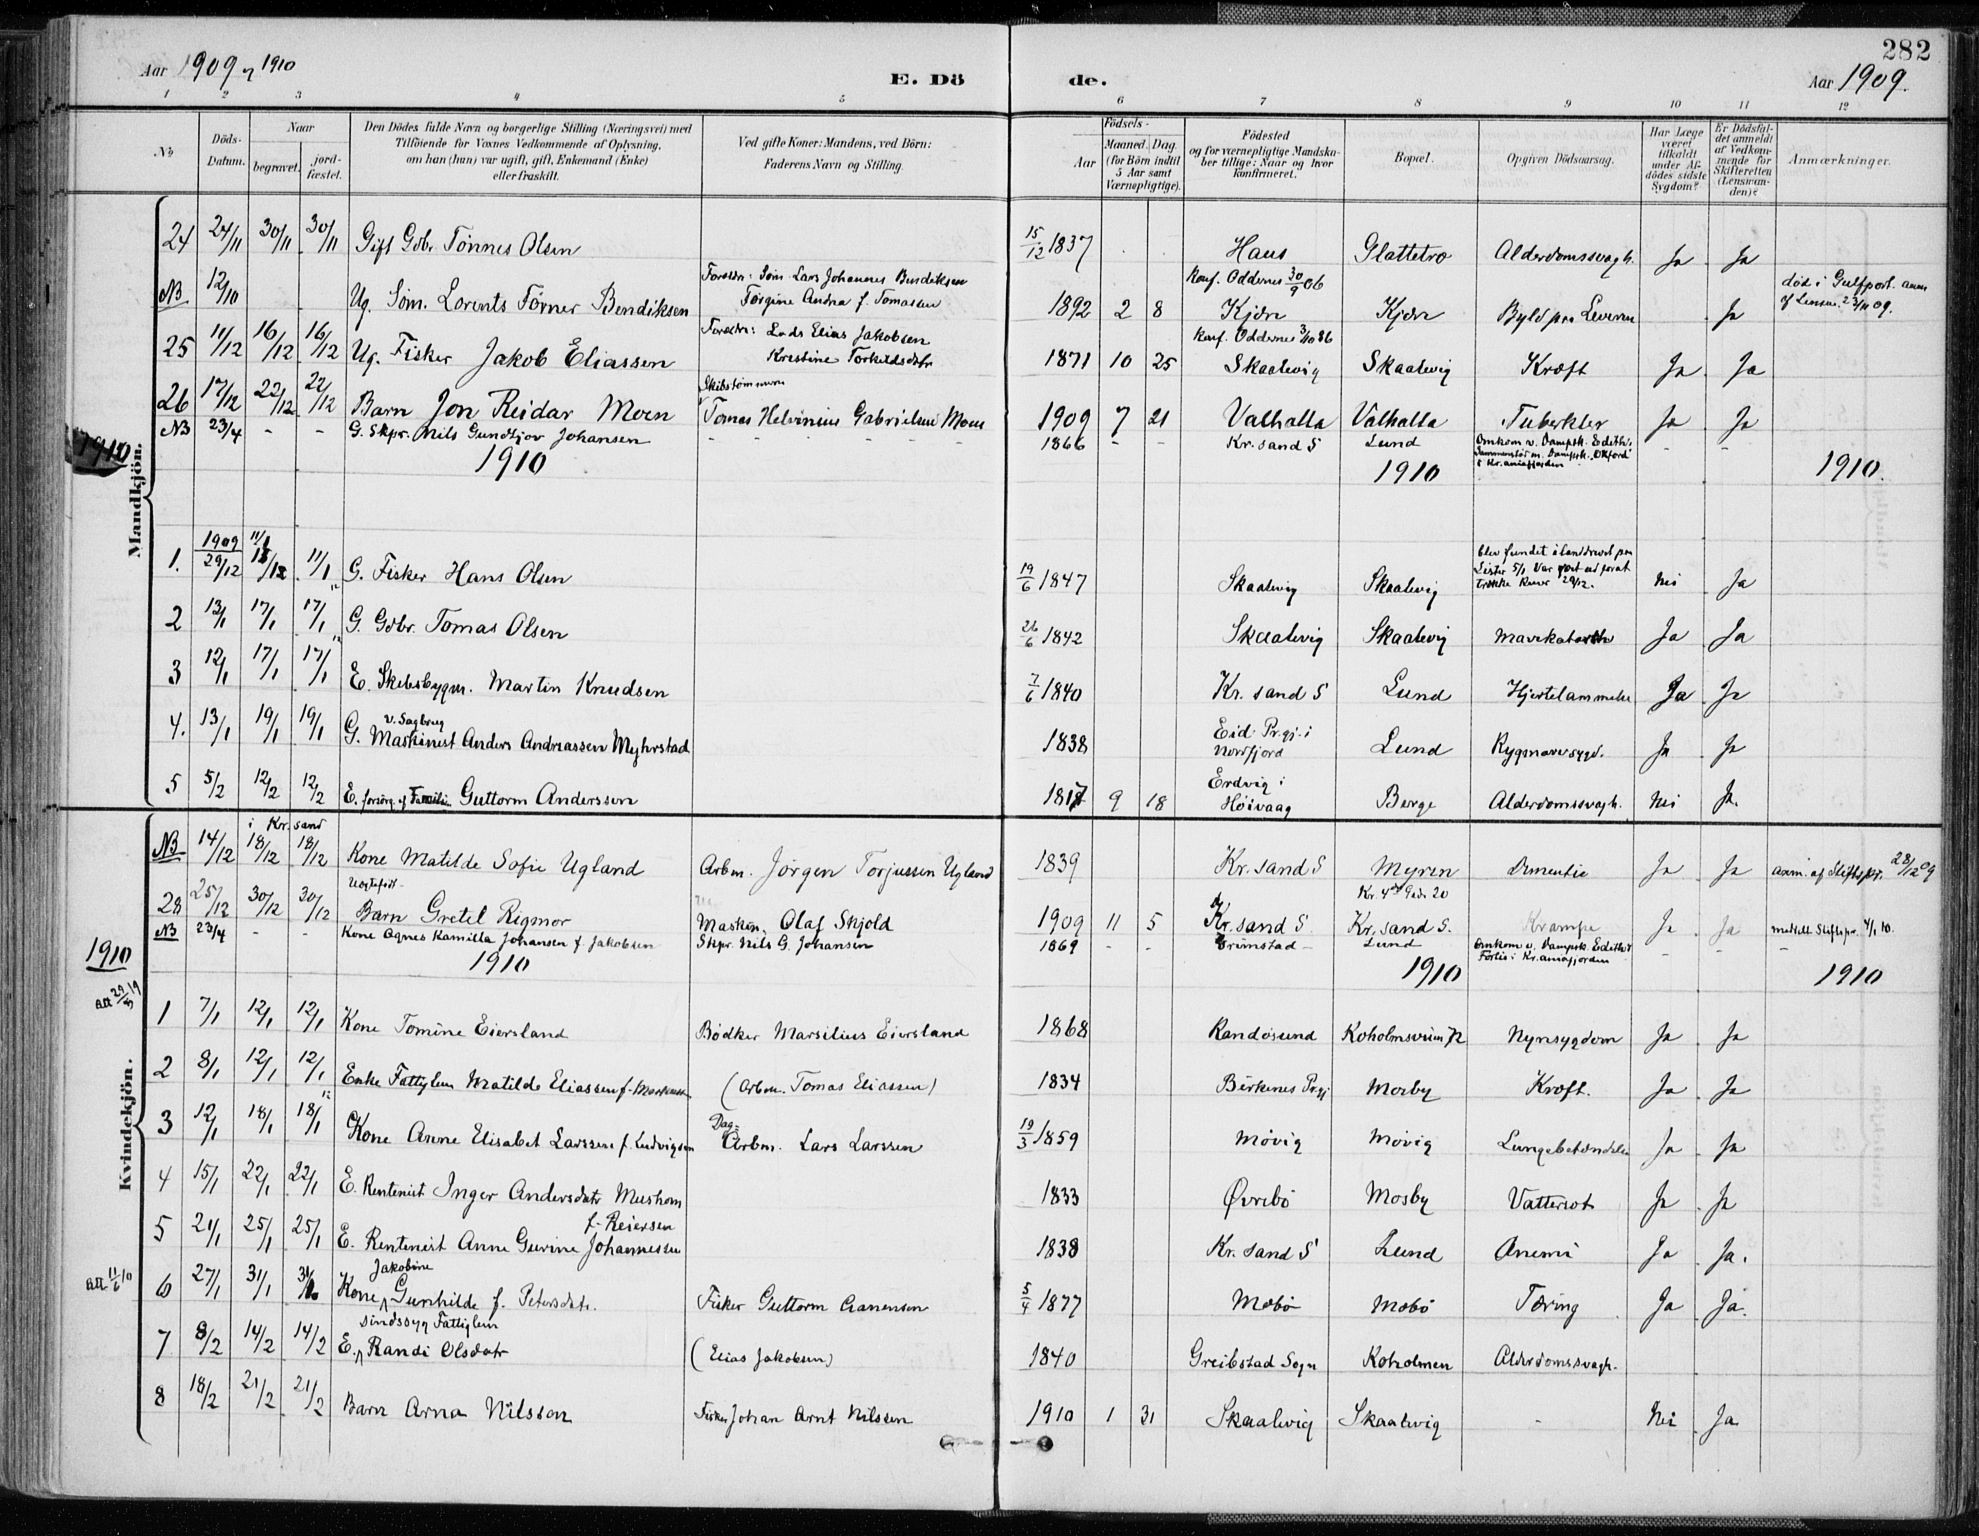 282
Aar 1909 og 1910 E. Dö de. Aar 1909.
1 2 3 4 5 6 7 8 9 10 11 12
No. Döds-Datum. Naar begravet. jord-fæstet. Den Dödes fulde Navn og borgerlige Stilling (Næringsvei) med Tilföiende for Voxnes Vedkommende af Oplysning, om han (hun) var ugift, gift, Enkemand (Enke) eller fraskilt. Ved gifte Koner: Mandens, ved Börn: Faderens Navn og Stilling. Födsels- Aar Maaned. Dag. (for Börn indtil 5 Aar samt Værnepligtige). Födested og for værnepligtige Mandskaber tillige: Naar og hvor konfirmeret. Bopæl. Opgiven Dödsaarsag. Har Læge været tilkaldt under Afdödes sidste Sygdom? Er Dödsfaldet anmeldt af Vedkommende for Skifteretten (Lensmanden)? Anmærkninger.
Mandkjön.
24 24/11 30/11 30/11 Gift Gdbr. Tønnes Olsen 15/12 1837 Haus Glattetre Alderdomssvagh. Ja Ja
NB 12/10 Ug. Søm. Lorents Tørner Bendiksen Foreldr: Søm. Lars Johannes Bendiksen Torgine Andrea f. Tomassen 1892 2 8 konf. Oddernes 30/9 06 Kjær Kjær Byld paa Leveren Ja død i Gulfport. anm. af Lensm. 23/11 09.
25 11/12 16/12 16/12 Ug. Fisker Jakob Eliassen Foreldr: Lods Elias Jakobsen Kristine Torkildsdtr 1871 10 25 konf. Oddernes 3/10 86 Skaalevig Skaalevig Kræft Ja Ja
26 17/12 22/12 22/12 Barn Jon Reidar Moen Skibstømmerm. Tomas Helvinius Gabrielsen Moen 1909 7 21 Valhalla Valhalla Tuberkler Ja Ja
NB 23/4 - - G. Skpr. Nils Gundtjov Johansen - - - - 1866 - - Kr.sand S Lund Omkom v. Dampsk. Edith's Sammenstød m. Dampsk. "Okford" i Kr.aniafjorden - -
1910 1910 1910 1910.
1. 1909 29/12 11/1 11/1 G. Fisker Hans Olsen 19/6 1847 Skaalevig Skaalevig blev fundet ilanddrevet paa Lister 5/1 Var Nei Ja
2 13/1 17/1 17/1 G. Gdbr. Tomas Olsen 26/6 1842 Skaalevig Skaalevig Mavekatarrh Ja Ja
3 12/1 17/1 17/1 E. Skibsbygm. Martin Knudsen 7/6 1840 Kr.sand S Lund Hjertelammelse Ja Ja
4. 13/1 19/1 19/1 G. Maskinist v. Sagbrug Anders Andreassen Myhrstad 1838 Eid Pr.gj. i Nordfjord Lund Rygmarvssygd. Ja Ja
5 5/2 12/2 12/2 E. forsørg. af Familie Guttorm Anderssen 1817 9 18 Erdvig i Høivaag Berge Alderdomssvagh. Nei Ja.
Kvindekjön.
i Kr.sand
NB 14/12 18/12 18/12 Kone Matilde Sofie Ugland Arbm. Jørgen Torjussen Ugland 1839 Kr.sand S Myren Dementie Ja Ja anm. af Skiftspr. 28/12 09
28 25/12 30/12 30/12 Uægtefødt Barn Gretel Rigmor Maskin. Olaf Skjold 1909 11 5 Kr.sand S Kr.sand S. Krampe Ja Ja meddelt Stiftspr. 4/1 10.
NB 23/4 - - Kone Agnes Kamilla Johansen f. Jakobsen Skpr. Nils G. Johansen 1869 - - Grimstad Lund Omkom v. Dampsk. Edith's Forlis i Kr.aniafjorden - -
1910 1910 1910 1910
Att 29/3 19
1 7/1 12/1 12/1 Kone Tomine Eiersland Bødker Marsilius Eiersland 1868 Randøsund Koholmsveien 72 Nyresygdom Ja Ja
2 8/1 12/1 12/1 Enke Fattiglem Matilde Eliassen f. Markussen (Arbm. Tomas Eliassen) 1834 Birkenes Prgj Mosby Kræft. Ja Ja
3 12/1 18/1 18/1 Kone Anne Elisabet Larssen f. Ludvigsen Dag-Arbm. Lars Larssen 19/3 1859 Møvig Møvig Lungebetændelse Ja Ja
4 15/1 22/1 22/1 E. Rentenist Inger Andersdatr Mushom 1833 Øvrebø Mosby Vattersot Ja Ja
5 21/1 25/1 25/1 E. Rentenist Anne Gurine Johannessen f. Reiersen 1838 Kr.sand S Lund Anemi Ja Ja.
Att 11/6 10
6 27/1 31/1 31/1 Kone Jakobine Gunhilde f. Petersdtr. Fisker Guttorm Ganensen 5/4 1877 Mæbø Mæbø Tæring Ja Ja.
7 8/2 14/2 14/2 E. sindssyg Fattiglem Randi Olsdatr (Elias Jakobsen) 1840 Greibstad Sogn Koholmen Alderdomssvagh.
8 18/2 21/2 21/2 Barn Arna Nilsson Fisker Johan Arnt Nilssen 1910 1 31 Skaalevig Skaalevig - Nei Ja